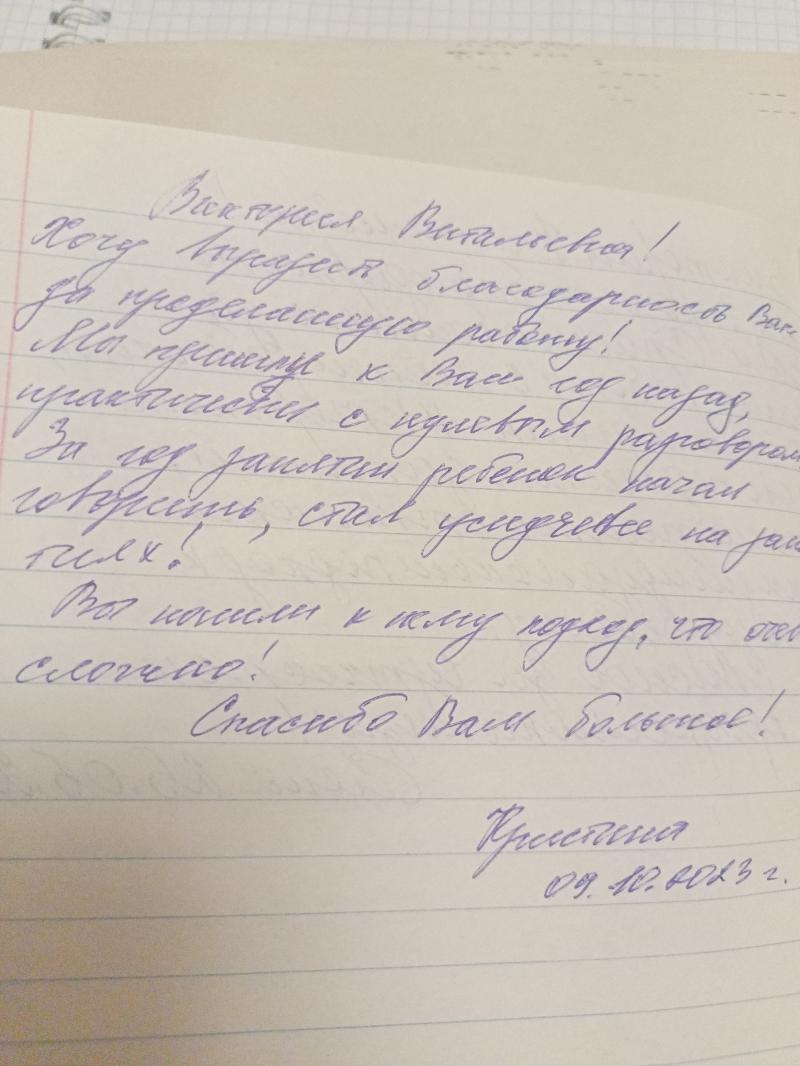 Виктория Витальевна!
Хочу выразить благодарность Вам
за проделанную работу!
Мы пришли к Вам год назад,
практически с нулевым разговором
За год занятий ребенок начал
говорить, стал усидчевее на заня
тиях!
Вы нашли к нему подход, что очень
сложно!
Спасибо Вам большое!
Кристина
09.10.2023 г.